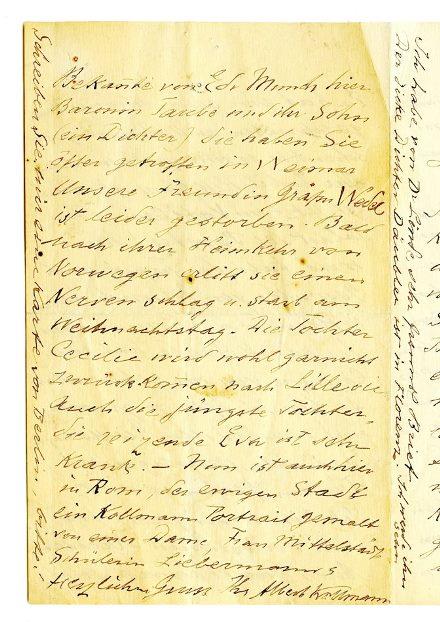 Bekannte von Ed. Munch hier
Baronin Taube und ihr Sohn
(ein Dichter) die haben Sie
öfter getroffen in Weimar
Unsere Freundin Gräfin Wedel
ist leider gestorben. Bald
nach ihrer Heimkehr von
Norwegen erlitt sie einen
Nervenschlag u. starb am
Weihnachtstag. Die Tochter
Cecilie wird wohl garnicht
zurückkom̄en nach
Auch die jüngste Tochter,
die reizende Eva ist sehr
krank. – Nun ist auch hier
in Rom, der ewigen Stadt
ein Kollmann Portrait gemalt
von einer Dame Frau Mittelstädt
Schülerin Liebermanns
Herzlichen Gruss Ihr Albert Kollmann
Schreiben Sie mir eine Karte von Berlin, bitte!
Ich habe von Dr. Linde sehr Brief.
Der dicke Dichter Däubler ist in Florenz. Ich werde ihn
sehn